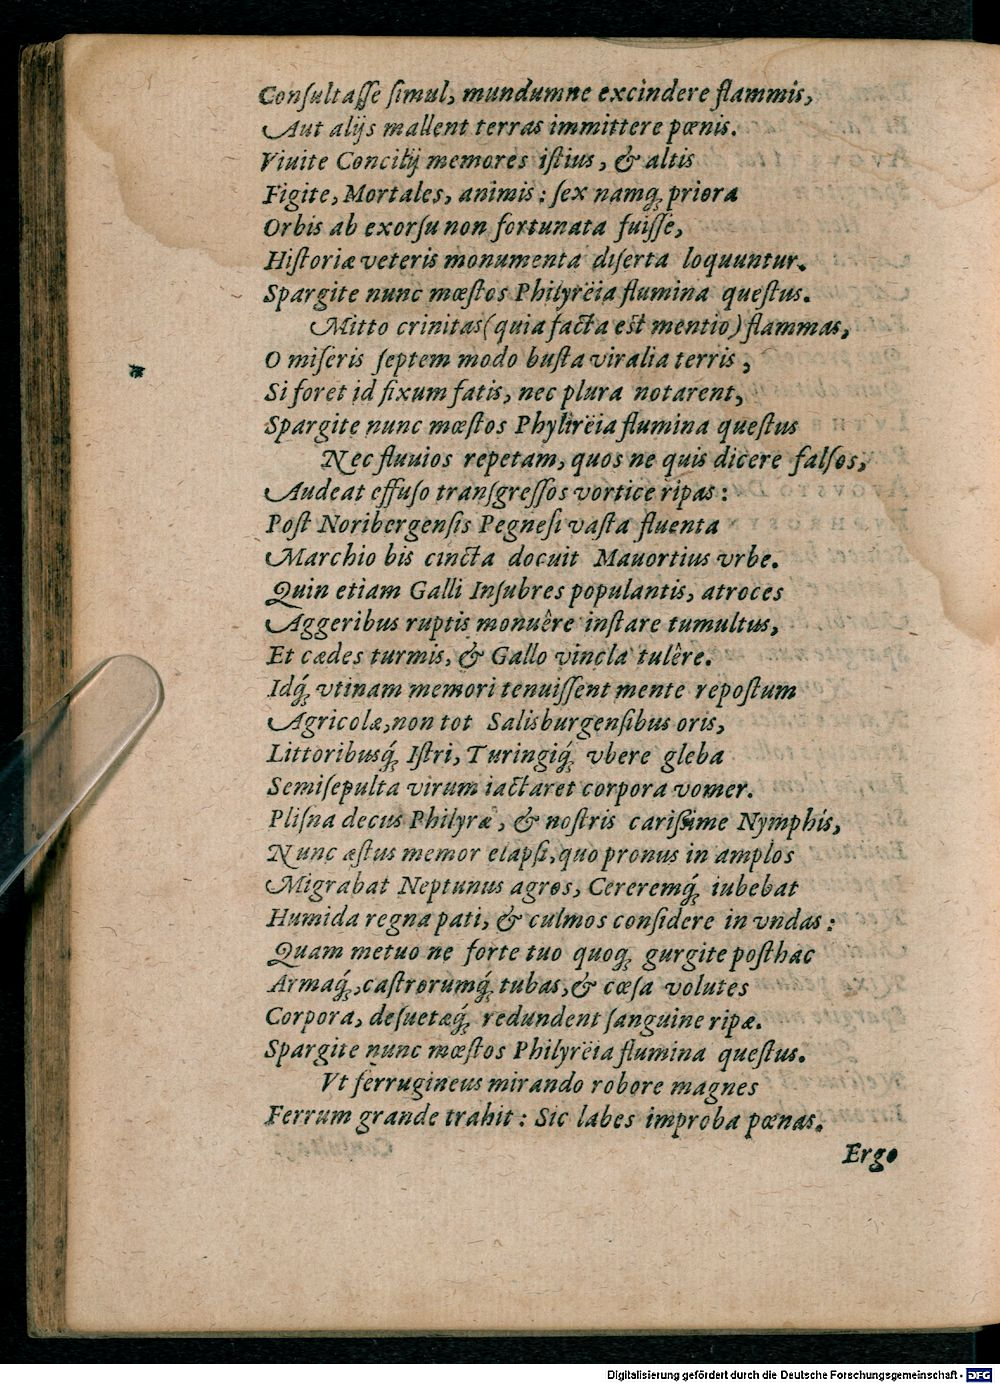 Conſultaſſe ſimul, mundumne excindere flammis,
Aut alijs mallent terras immittere pœnis.
Viuite Concilij memores iſtius, & altis
Figite, Mortales, animis: ſex namq́; priora
Orbis ab exorſu non fortunata fuiſſe,
Hiſtoriæ veteris monumenta diſerta loquuntur.
Spargite nunc mœſtos Philyrëia flumina queſtus.
Mitto crinitas (quia facta est mentio) flammas,
O miſeris ſeptem modo buſta viralia terris,
Si foret id fixum fatis, nec plura notarent,
Spargite nunc mœſtos Phylirëia flumina queſtus
Nec fluuios repetam, quos ne quis dicere falſos,
Audeat effuſo tranſgreſſos vortice ripas:
Poſt Noribergenſis Pegneſi vaſta fluenta
Marchio bis cincta docuit Mauortius vrbe.
Quin etiam Galli Inſubres populantis, atroces
Aggeribus ruptis monuêre inſtare tumultus,
Et cædes turmis, & Gallo vincla tulêre.
Idq́; vtinam memori tenuiſſent mente repoſtum
Agricolæ, non tot Salisburgenſibus oris,
Littoribusq́; Iſtri, Turingiq́; vbere gleba
Semiſepulta virum iactaret corpora vomer.
Pliſna decus Philyræ, & noſtris cariſſime Nymphis,
Nunc æſtus memor elapſi, quo pronus in amplos
Migrabat Neptunus agros, Cereremq́; iubebat
Humida regna pati, & culmos conſidere in vndas:
Quam metuo ne forte tuo quoq; gurgite poſthac
Armaq́;, caſtrorumq́; tubas, & cœſa volutes
Corpora, deſuetæq́; redundent ſanguine ripæ.
Spargite nunc mœſtos Philyrëia flumina queſtus.
Vt ferrugineus mirando robore magnes
Ferrum grande trahit: Sic labes improba pœnas.
Ergo
Digitalisierung gefördert durch die Deutsche Forschungsgemeinschaft - DFG